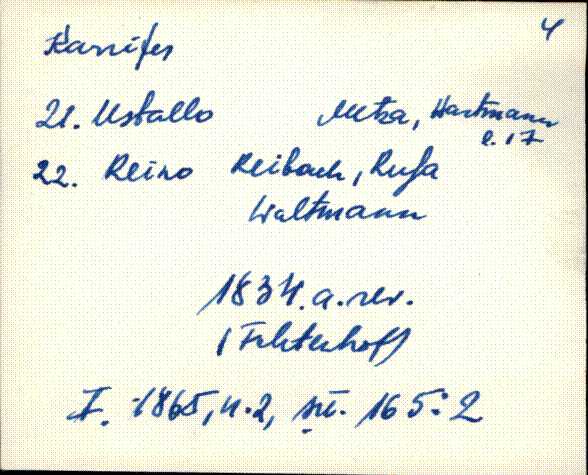 4
21. Ustallo Metsa, Hartmann
l. 17
22. Reino Reibach, Rufa
Waltmann
1834. a. rev.
I. 1865, n. 2, sü. 165:2